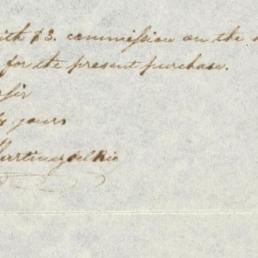 with $3. commission on the
for the present purchase.
Sir
yours
Martinez del Rio